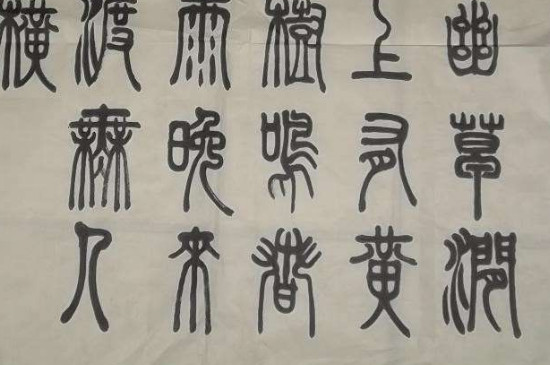 幽草澗
上有黃
樹鳴春
雨晚來
渡無人
橫